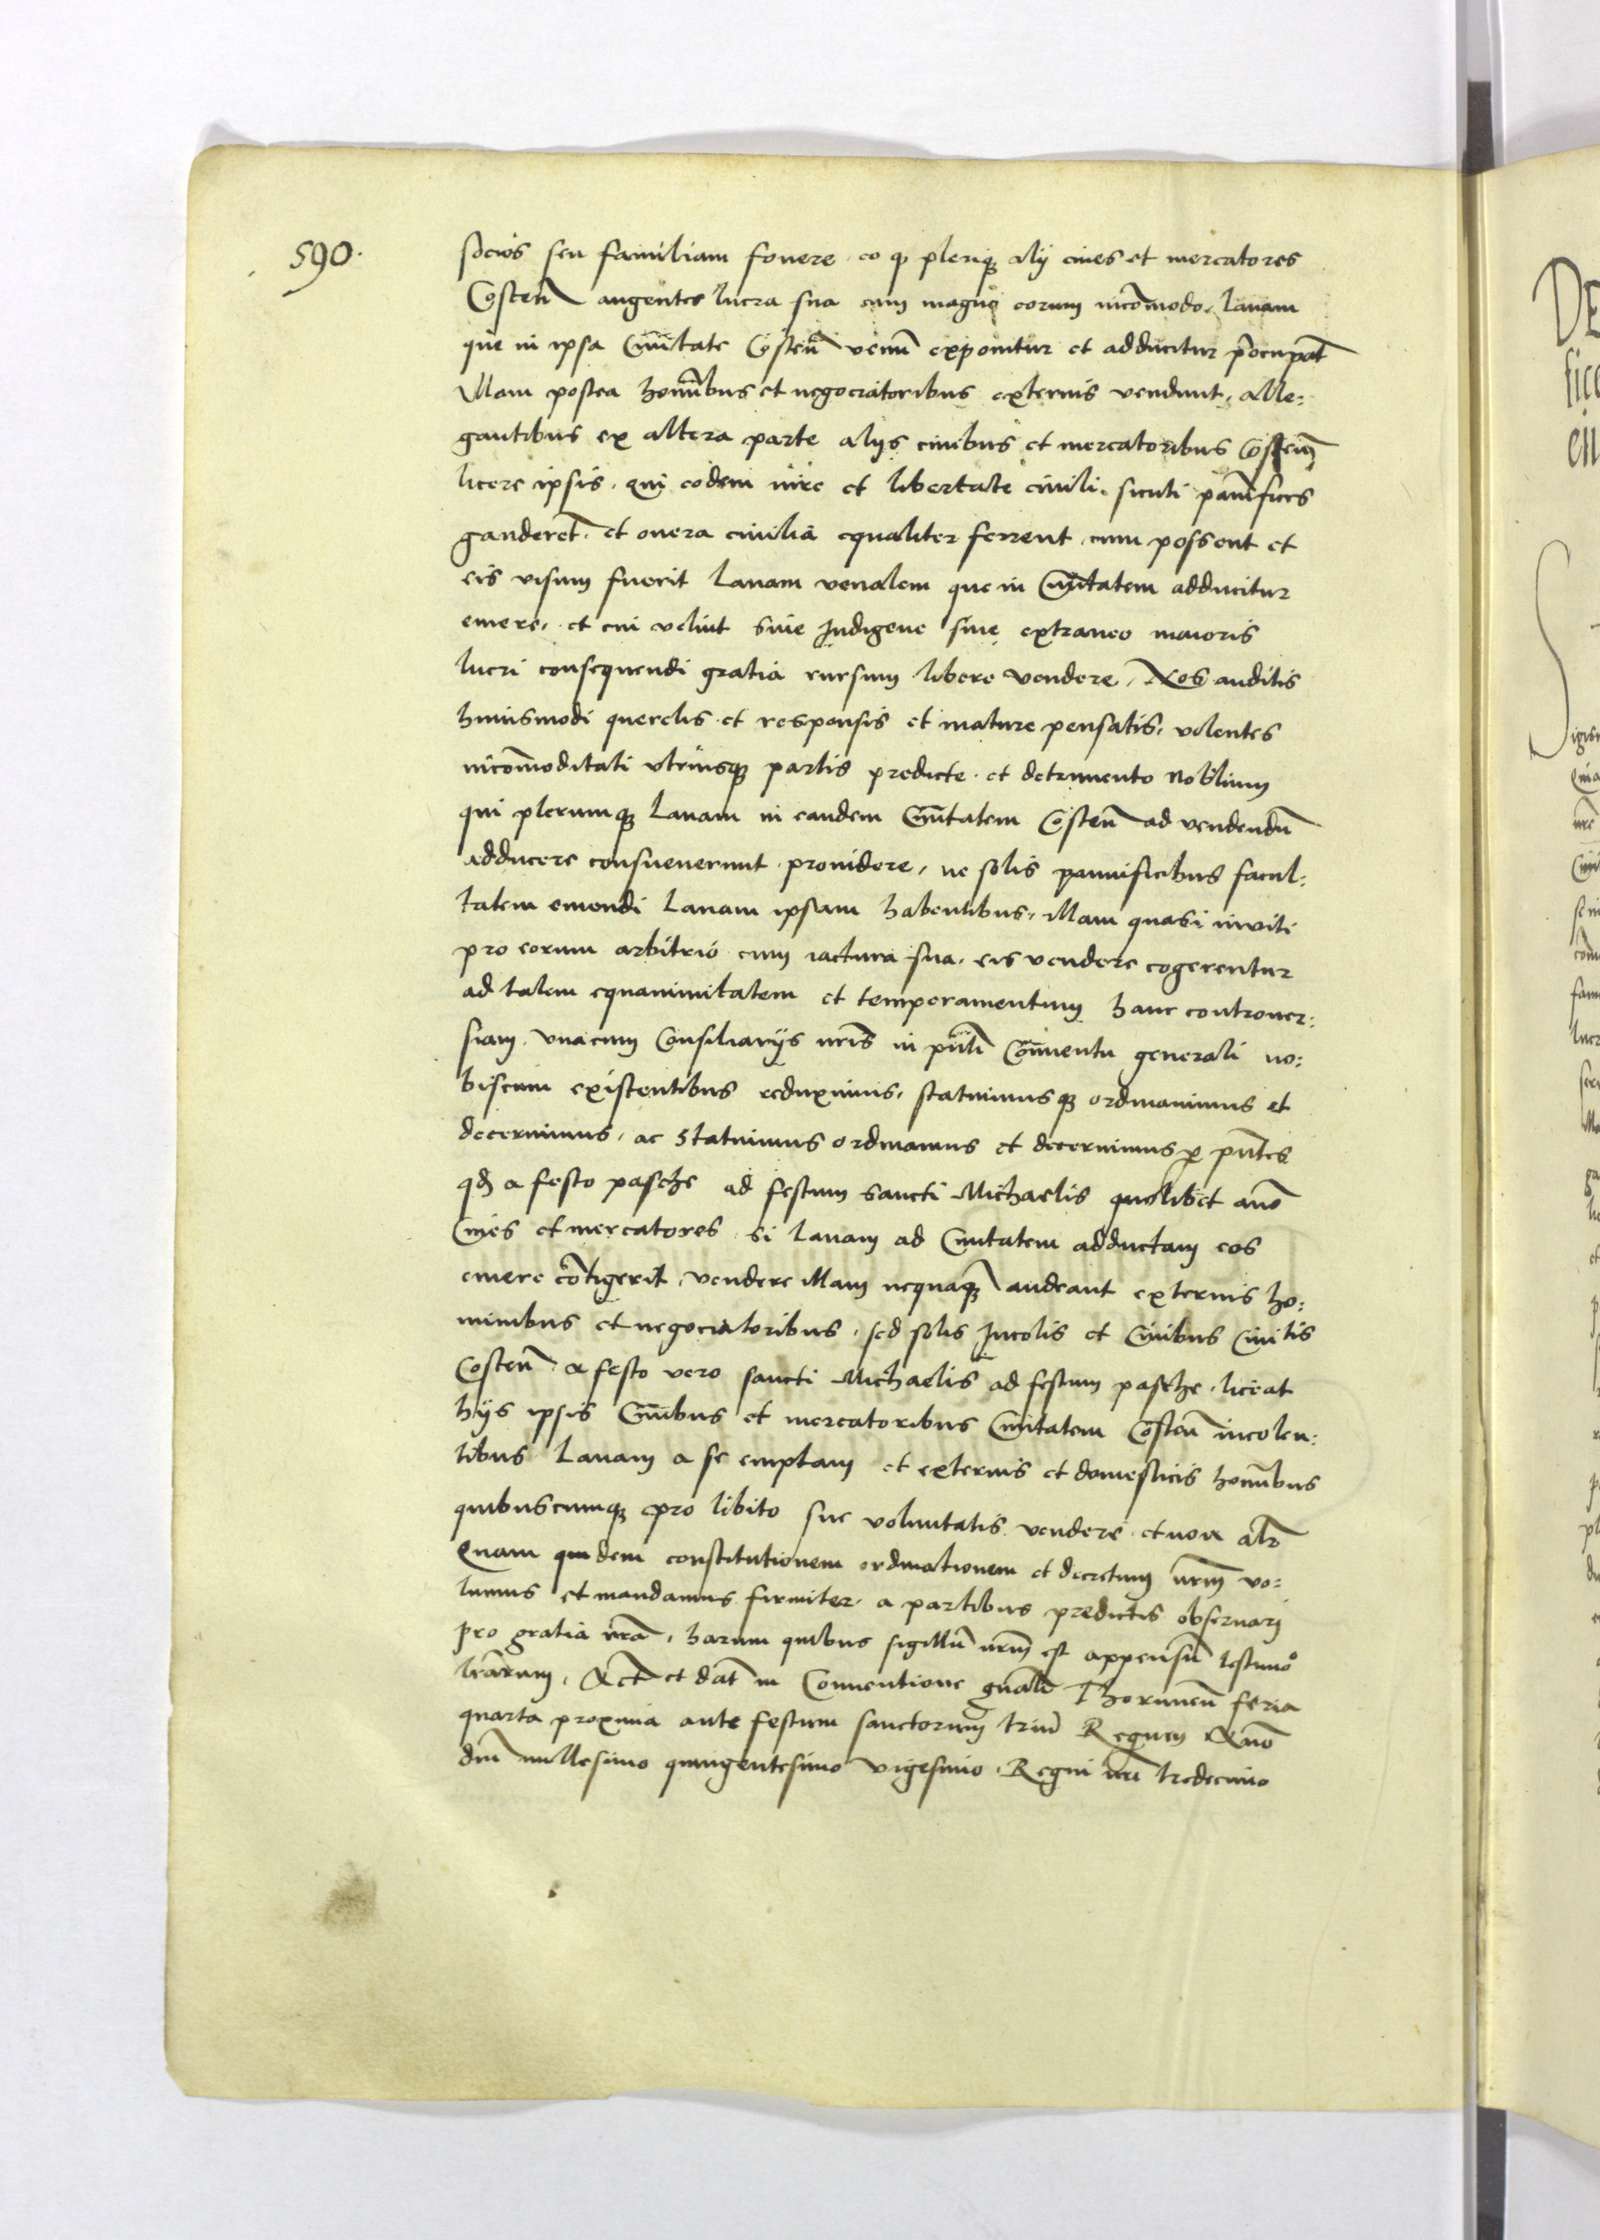 590.
socios seu familiam fovere, eo qp plerique alij cives et mercatores
Costen̄ augentes lucra sua cum magno eorum incōmodo, Lanam
que in ipsa Civitate Costen̄ venū exponitur et adducitur p̄ocupāt
Illam postea hominibus et negociatoribus externis vendunt, alle:
gantibus ex altera parte alijs civibus et mercatoribus Costen̄
licere ipsis, qui eodem iure et libertate civili, sicuti pannifices
gauderet̄, et onera civilia equaliter ferrent, cum possent et
eis visum fuerit Lanam venalem que in Civitatem adducitur
emere, et cui velint sive Indigene sive extraneo maioris
lucri consequendi gratia rursum libere vendere, Nos auditis
huiusmodi querelis et responsis et mature pensatis, volentes
incōmoditati utriusque partis predicte et detrimento Nobilium
qui plerumque Lanam in eandem Civitatem Costen̄ ad vendendū
adducere consueverunt providere, ne solis pannificibus facul:
tatem emendi Lanam ipsam habentibus, illam quasi inviti
pro eorum arbitrio cum iactura sua, eis vendere cogerentur
ad talem equanimitatem et temperamentum hanc controver:
siam, unacum Consiliarijs nr̄is in pn̄ti Conventu generali no:
biscum existentibus reduximus, statuimusque ordinavimus et
decernimus, ac statuimus ordinamus et decernimus p pn̄tes
qd a festo pasche ad festum sancti Michaelis quolibet anno
Cives et mercatores si Lanam ad Civitatem adductam eos
emere cōtigerit, vendere illam nequaquam audeant externis ho:
minibus et negociatoribus, sed solis Incolis et Civibus Civitis
Costen̄ a festo vero sancti Michaelis ad festum pasche, liceat
hijs ipsis Civibus et mercatoribus Civitatem Costen̄ incolen:
tibus Lanam a se emptam et externis et domesticis hominibus
quibuscumque pro libito sue voluntatis vendere et non alr̄
Quam quidem constitutionem ordinationem et decretum nr̄m vo:
lumus et mandamus firmiter a partibus predictis observari
pro gratia nr̄a, harum quibus sigillū nr̄m est appensū testimo
lr̄arum, Act̄ et dat̄ in Conventione gn̄ali Thorunen̄ feria
quarta proxima ante festum sanctorum triū Regum Anno
dn̄i millesimo quingentesimo vigesimo, Regni nr̄i tredecimo